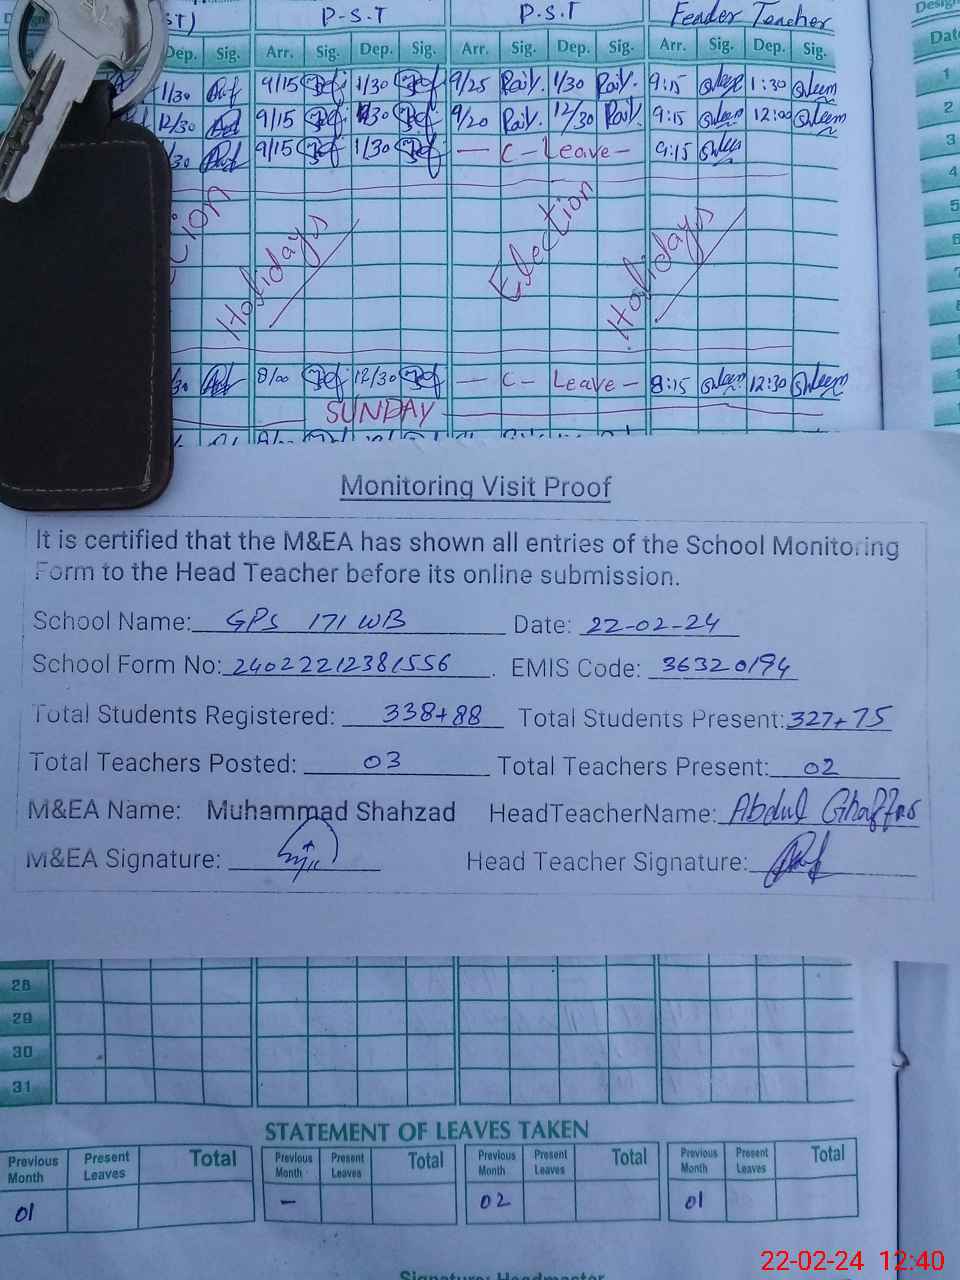 ST) P-S-T P.S.T Feader Teacher
Dep. Sig. Arr. Sig. Dep. Sig. Arr. Sig. Dep. Sig. Arr. Sig. Dep. Sig. Date
1/30 9/15 1/30 9/25 1/30 9:15 1:30 1
12/30 9/15 9/20 12/30 9:15 12:00 2
/30 9/15 1/30 — C - Leave - 9:15 3
4
5
Holidays Election Holidays
/30 8/00 12/30 — C - Leave - 8:15 12:30
SUNDAY
Monitoring Visit Proof
It is certified that the M&EA has shown all entries of the School Monitoring
Form to the Head Teacher before its online submission.
School Name: GPS 171 WB Date: 22-02-24
School Form No: 24022212381556 . EMIS Code: 36320194
Total Students Registered: 338+88 Total Students Present: 327+75
Total Teachers Posted: 03 Total Teachers Present: 02
M&EA Name: Muhammad Shahzad HeadTeacherName: Abdul Ghaffar
M&EA Signature: Head Teacher Signature:
28
29
30
31
STATEMENT OF LEAVES TAKEN
Previous Month Present Leaves Total Previous Month Present Leaves Total Previous Month Present Leaves Total Previous Month Present Leaves Total
01 - 02 01
Signature: Headmaster
22-02-24 12:40